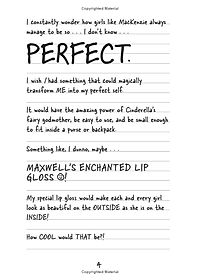 I constantly wonder how girls like MacKenzie always
manage to be so . . . I don't know . . .
PERFECT.
I wish I had something that could magically
transform ME into my perfect self.
It would have the amazing power of Cinderella's
fairy godmother, be easy to use, and be small enough
to fit inside a purse or backpack.
Something like, I dunno, maybe . . .
MAXWELL'S ENCHANTED LIP
GLOSS ☺!
My special lip gloss would make each and every girl
look as beautiful on the OUTSIDE as she is on the
INSIDE!
How COOL would THAT be?!
4